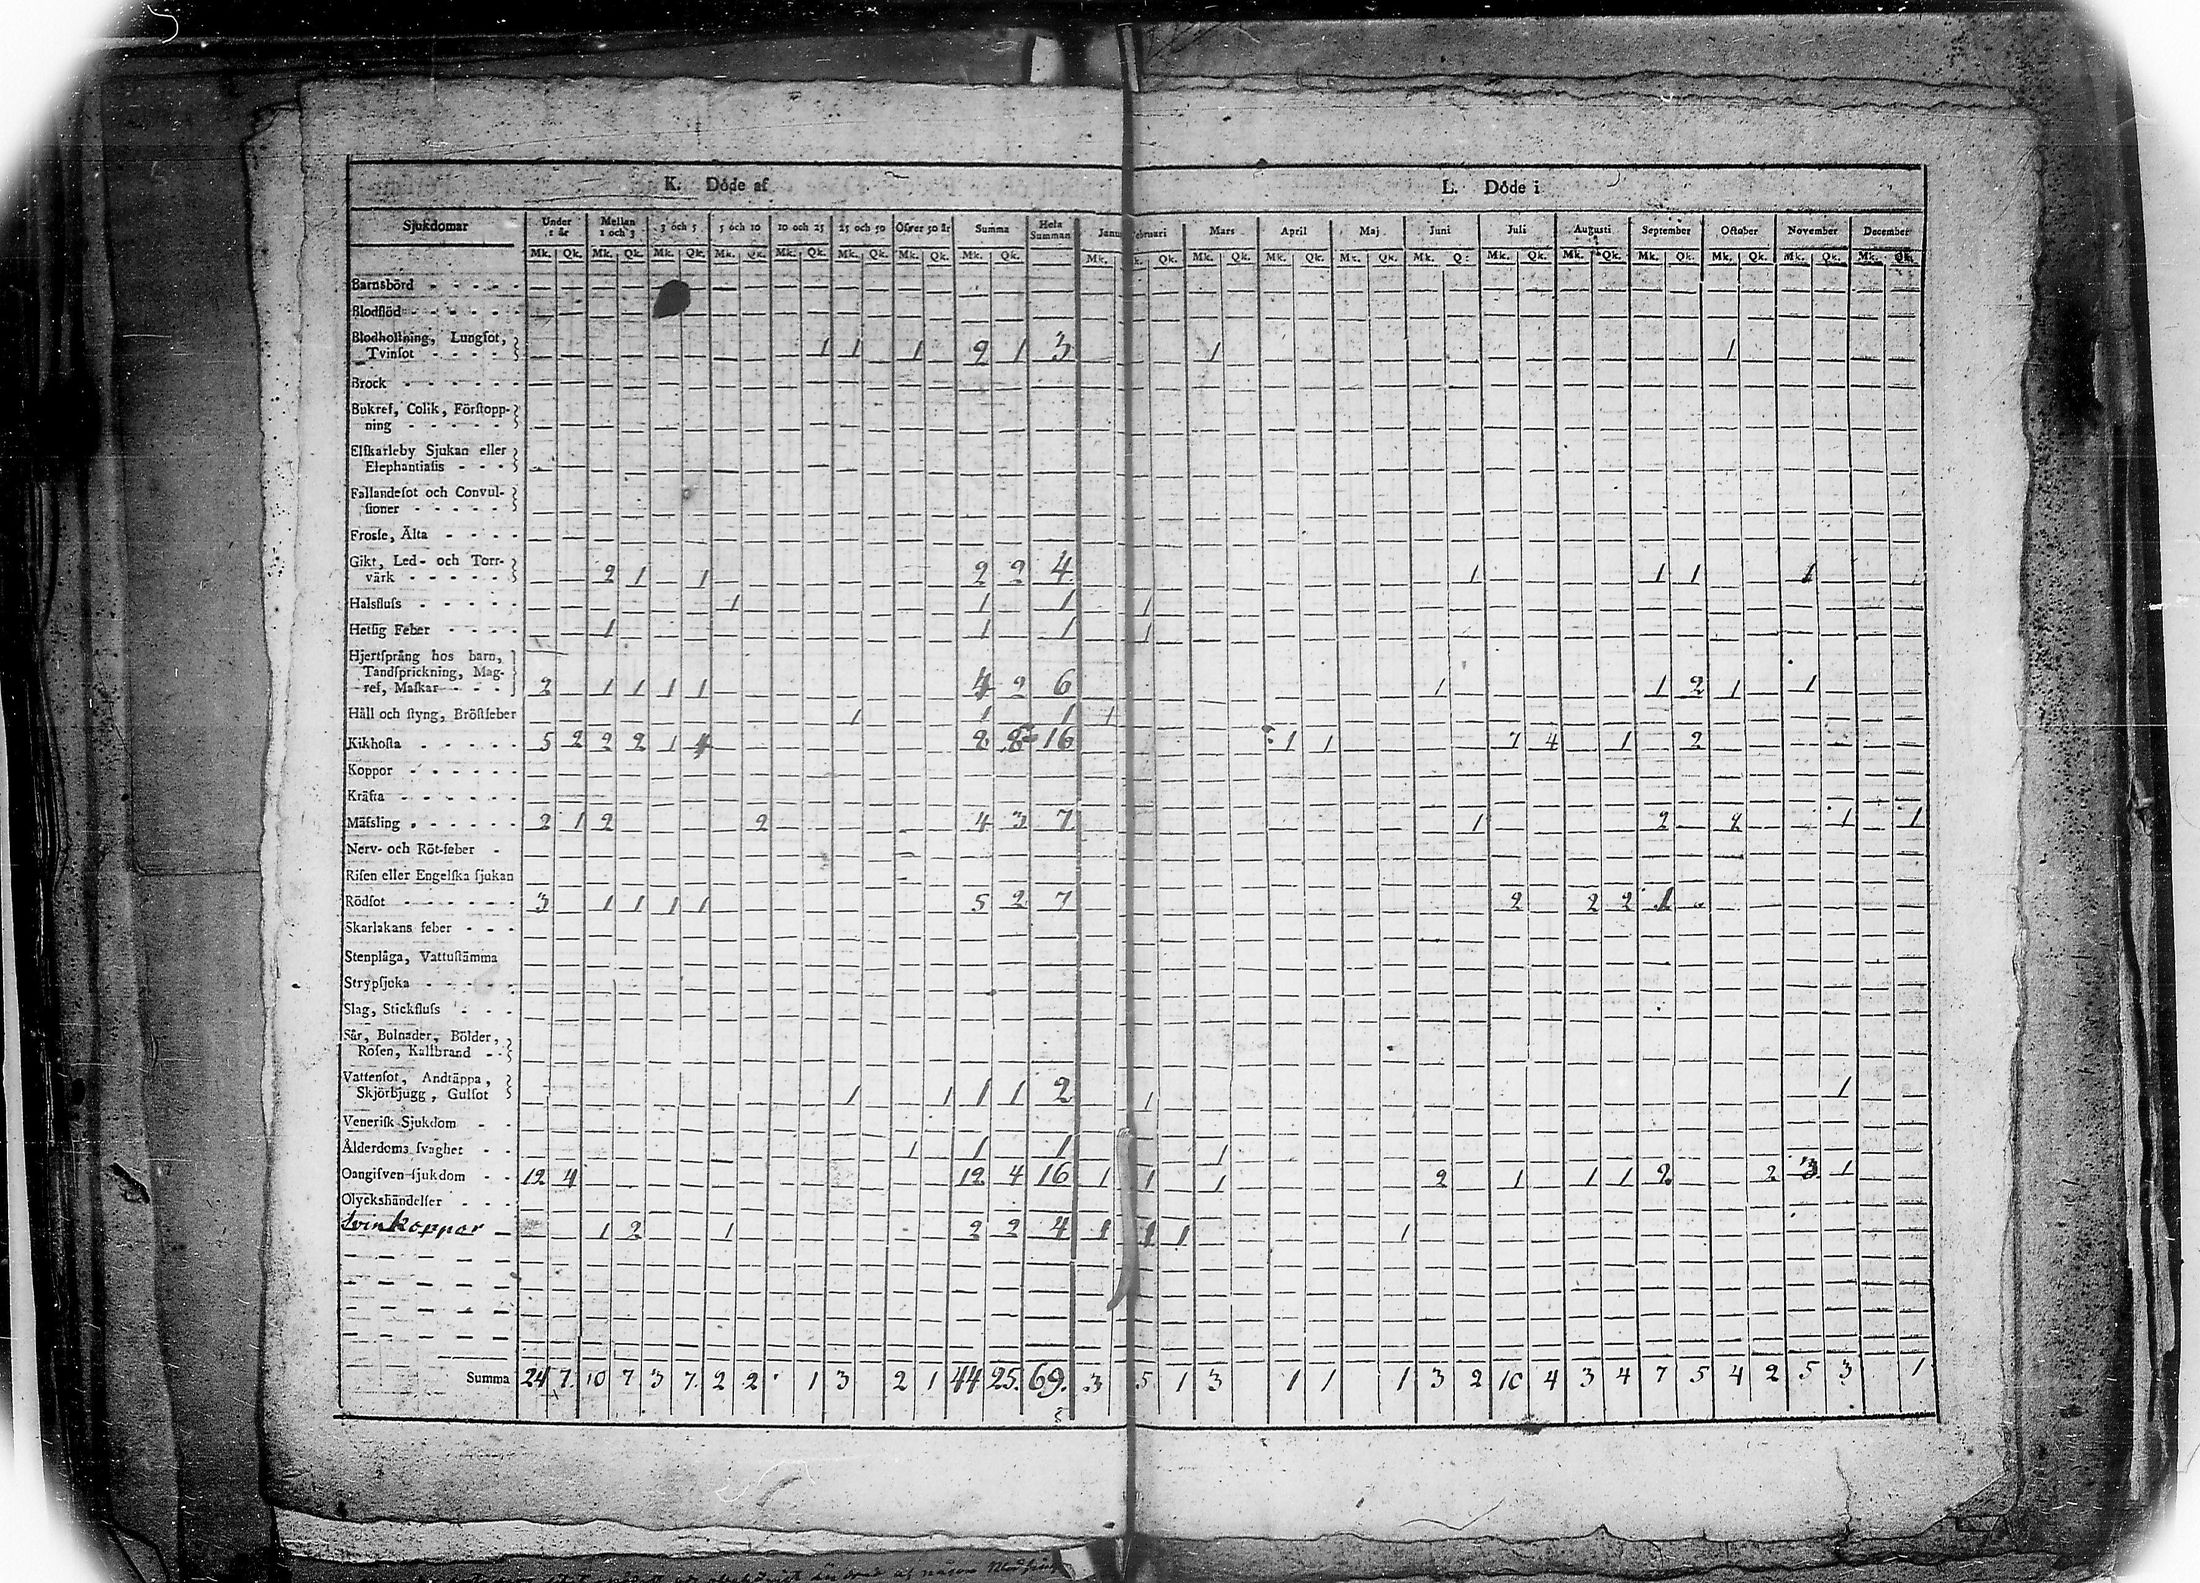 K. Döde af L. Döde i
Sjukdomar Under 1 år Mellan 1 och 3 3 och 5 5 och 10 10 och 25 25 och 50 Öfver 50 år Summa Hela Summan Janu ebruari Mars April Maj Juni Juli Augusti September October November December
Mk. Qk. Mk. Qk. Mk. Qk. Mk. Qk. Mk. Qk. Mk. Qk. Mk. Qk. Mk. Qk. Mk. k. Qk. Mk. Qk. Mk. Qk. Mk. Qk. Mk. Q Mk. Qk. Mk. Qk. Mk. Qk. Mk. Qk. Mk. Qk. Mk. Qk.
Barnsbörd
Blodflöd
Blodhoſtning, Lungſot,
Tvinſot 1 1 1 2 1 3 1 1
Brock
Bukref, Colik, Förſtopp-
ning
Elſkarleby Sjukan eller
Elephantiaſis
Fallandeſot och Convul-
ſioner
Frosſe, Älta
Gikt, Led- och Torr-
värk 2 1 1 2 2 4 1 1 1 1
Halsfluſs 1 1 1 1
Hetſig Feber 1 1 1 1
Hjertſprång hos barn,
Tandſprickning, Mag-
ref, Maſkar 2 1 1 1 1 4 2 6 1 1 2 1 1
Håll och ſtyng, Bröſtfeber 1 1 1 1
Kikhoſta 5 2 2 2 1 4 8 8 16 1 1 7 4 1 2
Koppor
Kräfta
Mäſsling 2 1 2 2 4 3 7 1 2 2 1 1
Nerv- och Röt-feber
Riſen eller Engelſka ſjukan
Rödſot 3 1 1 1 1 5 2 7 2 2 2 1
Skarlakans feber
Stenplåga, Vattuſtämma
Strypſjuka
Slag, Stickfluſs
Sår, Bulnader, Bölder,
Roſen, Kallbrand
Vattenſot, Andtäppa,
Skjörbjugg, Gulſot 1 1 1 1 2 1 1
Veneriſk Sjukdom
Ålderdoms ſvaghet 1 1 1 1
Oangifven ſjukdom 12 4 12 4 16 1 1 1 2 1 1 1 2 2 3 1
Olyckshändelſer
Svinkoppor 1 2 1 2 2 4 1 1 1 1
Summa 24 7. 10 7 3 7. 2 2 1 3 2 1 44 25. 69. 3 5 1 3 1 1 1 3 2 10 4 3 4 7 5 4 2 5 3 1